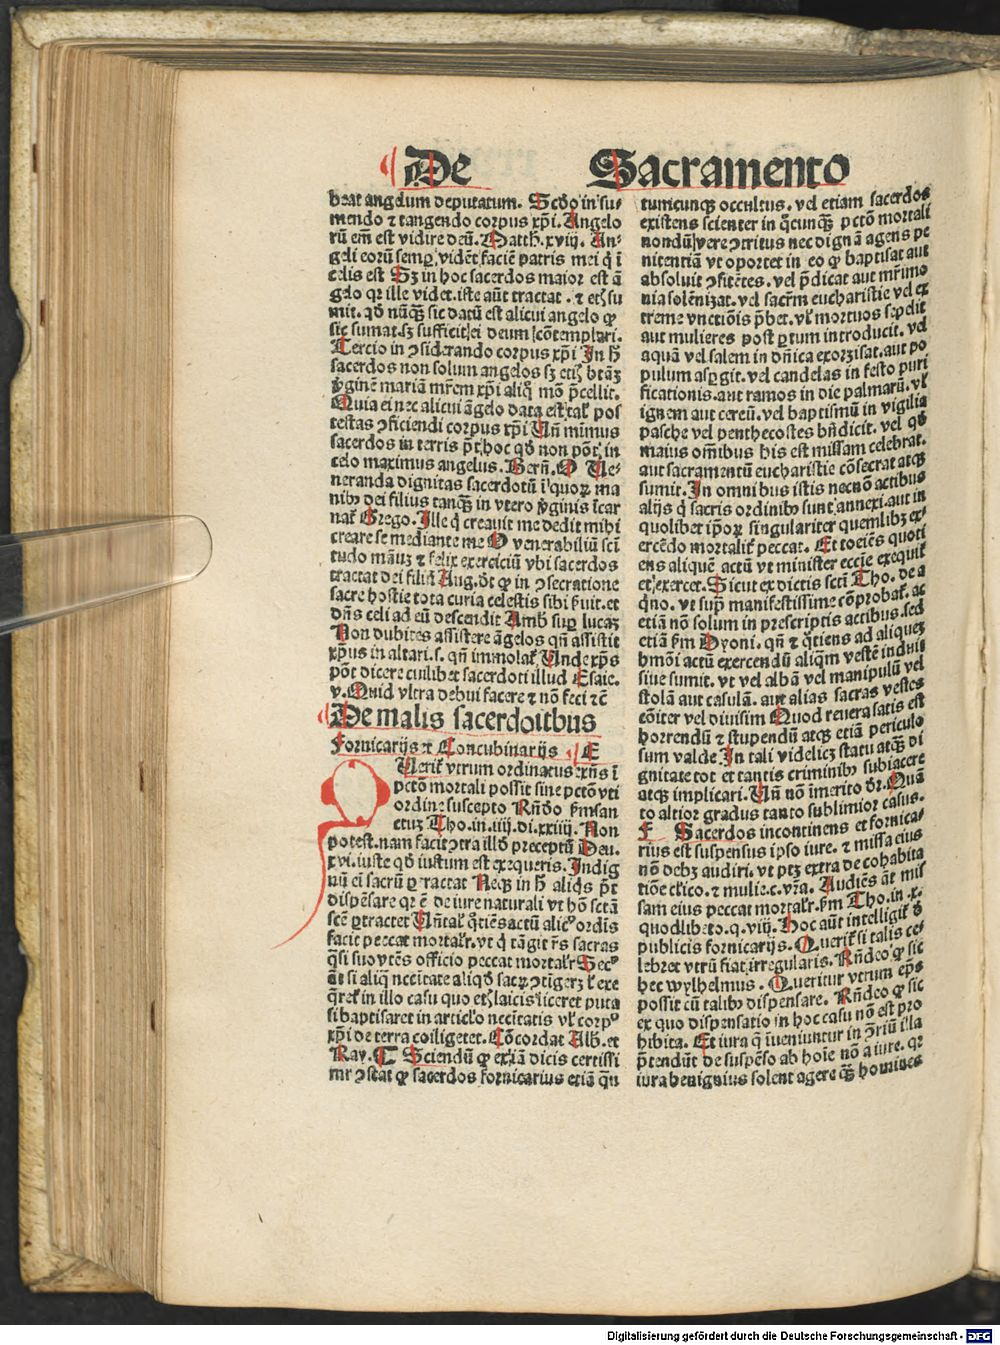 De Sacramento
beat angelum deputatum. Scd̓o in su⸗
mendo ⁊ tangendo corpus xp̄i. Angelo
rū em̄ est vidire deū. Matth. xviij. An⸗
geli eorū semꝑ vidēt faciē patris mei q̄ ī
celis est Sꝫ in hoc sacerdos maior est ā
gelo qr ille videt. iste aūt tractat. ⁊ etꝫ su
mit. qđ nūqꝫ sic datū est alicui angelo ꝙ
sic sumat. sꝫ sufficit ei deum cōtemplari.
Tercio in ꝯsiderando corpus xp̄i In h̄
sacerdos non solum angelos sꝫ etiā btāꝫ
v̓ginē mariā mr̄em xp̄i aliq̄ mō p̄cellit.
Quia ei nec alicui āgelo data est tal̓ pos
testas ꝯficiendi corpus xp̄i Vn̄ minimus
sacerdos in terris pōt hoc qđ non pōt in
celo maximus angelus. Bern̄. O Ve⸗
neranda dignitas sacerdotū ī quoꝝ ma
nibꝰ dei filius tanqꝫ in vtero v̓ginis īcar
nat̓ Grego. Ille q̄ creauit me dedit mihi
creare se mediante me O venerabiliū scī
tudo manuū ⁊ felix exerciciū vbi sacerdos
tractat dei filiū Aug. dt̄ ꝙ in ꝯsecratione
sacre hostie tota curia celestis sibi ẜuit. et
dn̄s celi ad eū descendit Amb̓ suꝑ lucaꝫ
Non dubites assistere āgelos qn̄ assistit
xp̄us in altari. s. qn̄ immolat̓ Vnde xp̄s
pōt dicere cuilibet sacerdoti illud Esaie.
v. Quid vltra debui facere ⁊ nō feci ⁊c̄
De malis sacerdoitbus
Fornicarijs et Concubinarijs E
Verit̓ vtrum ordinatus exn̄s ī
pctō mortali possit sine pctō vti
ordine suscepto Rn̄do ẜm san
ctuꝫ Tho. in. iiij. di. xxiiij. Non
potest. nam facit ꝯtra illđ preceptū Deu.
xvi. iuste qđ iustum est exequeris. Indig
nū ei sacrū ꝑtractat Neqꝫ in h̄ aliq̄s pōt
dispēsare qr ē de iure naturali vt hō sctā
scē ꝑtractet Vn̄ tal̓ q̄tiēs actū alic̓ ordīs
facit peccat mortal̓r. vt q̄ tāgit r̄s sacras
q̄si suo vtēs officio peccat mortal̓r Secꝰ
āt si aliq̄ necc̄itate aliqđ sacꝝ ꝯtigerꝫ ł exe
q̄ret̓ in illo casu quo etꝫ laicis liceret puta
si baptisaret in articl̓o necc̄itatis vł corpꝰ
xp̄i de terra coiligetet. Cōcordat Alb̓. et
Ray. ¶ Sciendū ꝙ ex iā dicis certissi
me ꝯstat ꝙ sacerdos fornicarius etiā q̄n
tumcunqꝫ occultus. vel etiam sacerdos
existens scienter in q̄cunqꝫ pctō mortali
nondū vere ꝯtritus nec dignā agens pe
nitentiā vt oportet in eo ꝙ baptisat aut
absoluit ꝯfitētes. vel p̄dicat aut mr̄imo
nia solēnizat. vel sacr̄m eucharistie vel ex
treme vnctiōis p̄bet. vł mortuos sepelit
aut mulieres post ꝑtum introducit. vel
aquā vel salem in dn̄ica exorzisat. aut po
pulum aspergit. vel candelas in festo puri
ficationis. aut ramos in die palmarū. vł
ignem aut cereū. vel baptismū in vigilia
pasche vel penthecostes bn̄dicit. vel qđ
maius om̄ibus his est missam celebrat.
aut sacramentū eucharistie cōsecrat atqꝫ
sumit. In omnibus istis necnō actibus
alijs q̄ sacris ordinibꝰ sunt annexi. aut in
quolibet ip̄oꝝ singulariter quemlibꝫ ex⸗
ercēdo mortalit̓ peccat. Et toeiēs quoti
ens aliquē actū vt minister eccīe exequit̓
et exercet. Sicut ex dictis scti Tho. de a
q̄no. vt supͣ manifestissime cōprobat̓. ac
etiā nō solum in prescriptis actibus. sed
etiā ẜm Dyoni. qn̄ ⁊ q̄tiens ad aliqueꝫ
hmōi actū exercendū aliq̄m vestē induit
siue sumit. vt vel albā vel manipulū vel
stolā aut casulā. aut alias sacras vestes
cōiter vel diuisim Quod reuera satis est
horrendū ⁊ stupendū atqꝫ etiā periculo
sum valde In tali videlicꝫ statu atqꝫ di
gnitate tot et tantis criminibꝰ subiacere
atqꝫ implicari. Vn̄ nō īmerito dr̄. Quā
to altior gradus tanto sublimior casus.
F Sacerdos incontinens et fornica⸗
rius est suspensus ipso iure. ⁊ missa eius
nō debꝫ audiri. vt ptꝫ extra de cohabita
tiōe cl̓ico. ⁊ mulie. c. vr̄a. Audiēs āt mis
sam eius peccat mortal̓r. ẜm Tho. in. x.
quodlibeto. q. viij. Hoc aūt intelligit̓ d̄
publicis fornicarijs. Querit̓ si talis ce⸗
lebret vtrū fiat irregularis. Rn̄deo ꝙ sic
hec wylhelmus. Queritur vtrum ep̄s
possit cū talibꝰ dispensare. Rn̄deo ꝙ sic
ex quo dispensatio in hoc casu nō est pro
hibita. Et iura q̄ inueniuntur in ꝯriū illa
p̄tendūt de suspēso ab hoīe nō a iure. qr
iura benignius solent agere qͣꝫ homines
Digitalisierung gefördert durch die Deutsche Forschungsgemeinschaft - DFG